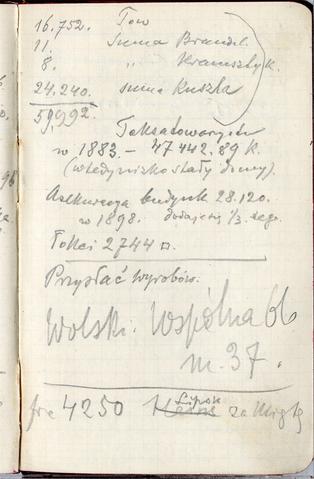 16.752. Tow
11. Suma Brandl.
8. " Kramsztyk.
24.240. suma Ruszka
59,992.
Taksa towarzystw
w 1883 – 47 442.89 k.
(wtedy nisko stały domy).
Asekuracya budynk 28.120.
w 1898. dodając ⅓ tego.
Łokci 2744 □.
Przysłać wyrobów.
Wolski. Wspólna 66
m. 37.
Lipok
4250 za Mig